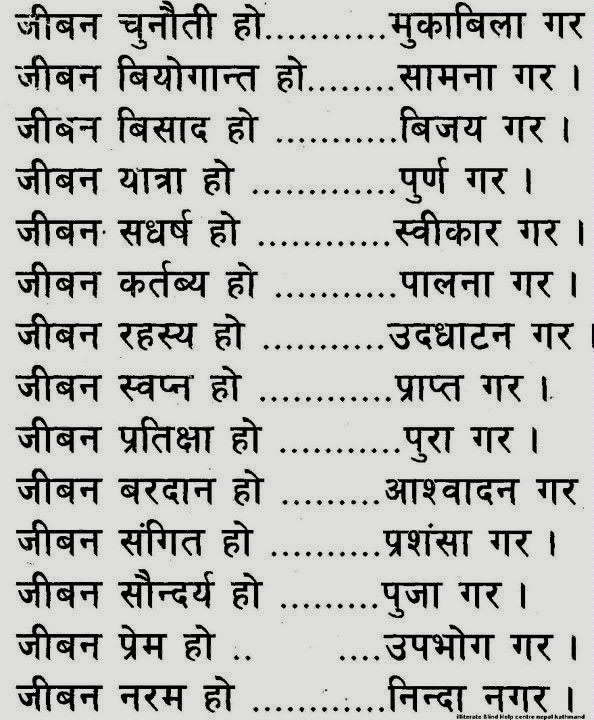 जीबन चुनौती हो...........मुकाबिला गर
जीबन बियोगान्त हो........सामना गर ।
जीबन बिसाद हो ...........बिजय गर ।
जीबन यात्रा हो .............पुर्ण गर ।
जीबन सधर्ष हो ............स्वीकार गर ।
जीबन कर्तब्य हो ...........पालना गर ।
जीबन रहस्य हो ...........उदधाटन गर ।
जीबन स्वप्न हो ............प्राप्त गर ।
जीबन प्रतिक्षा हो ...........पुरा गर ।
जीबन बरदान हो .........आश्वादन गर
जीबन संगित हो ..........प्रशंसा गर ।
जीबन सौन्दर्य हो .........पुजा गर ।
जीबन प्रेम हो .. ....उपभोग गर ।
जीबन नरम हो .............निन्दा नगर ।
illiterate Blind Help centre nepal kathmand